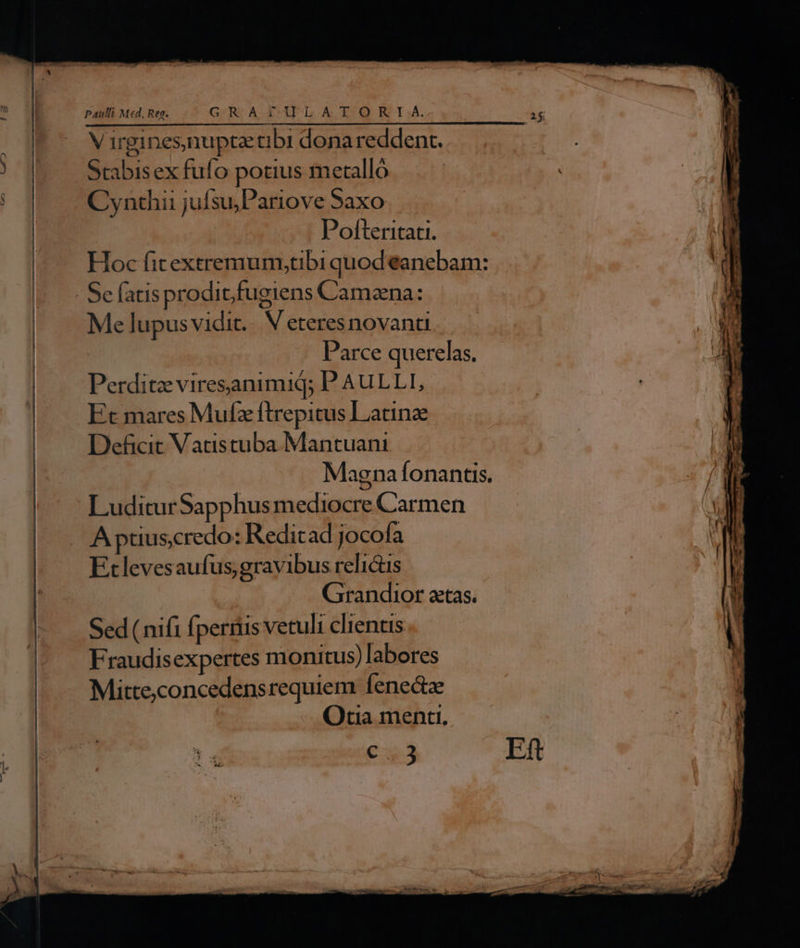 Paulli Med. Reg. GRATULATORIA. 25
Virgines,nuptæ tibi dona reddent.
Stabis ex fuſo potius metallô
Cynthii juſsu,Pariove Saxo
Poſteritati.
Hoc ſit extremum,tibi quod canebam:
Se ſatis prodit,fugiens Camæna:
Me lupus vidit. Veteres novanti
Parce querelas.
Perditæ vires,animiq; PAULLI,
Et mares Muſæ ſtrepitus Latinæ
Deficit Vatis tuba Mantuani
Magna ſonantis.
Luditur Sapphus mediocre Carmen
Aptius,credo: Redit ad jocoſa
Et leves auſus,gravibus relictis
Grandior ætas.
Sed (niſi ſpernis vetuli clientis
Fraudis expertes monitus) labores
Mitte,concedens requiem ſenectæ
Otia menti.
C 3 Eſt